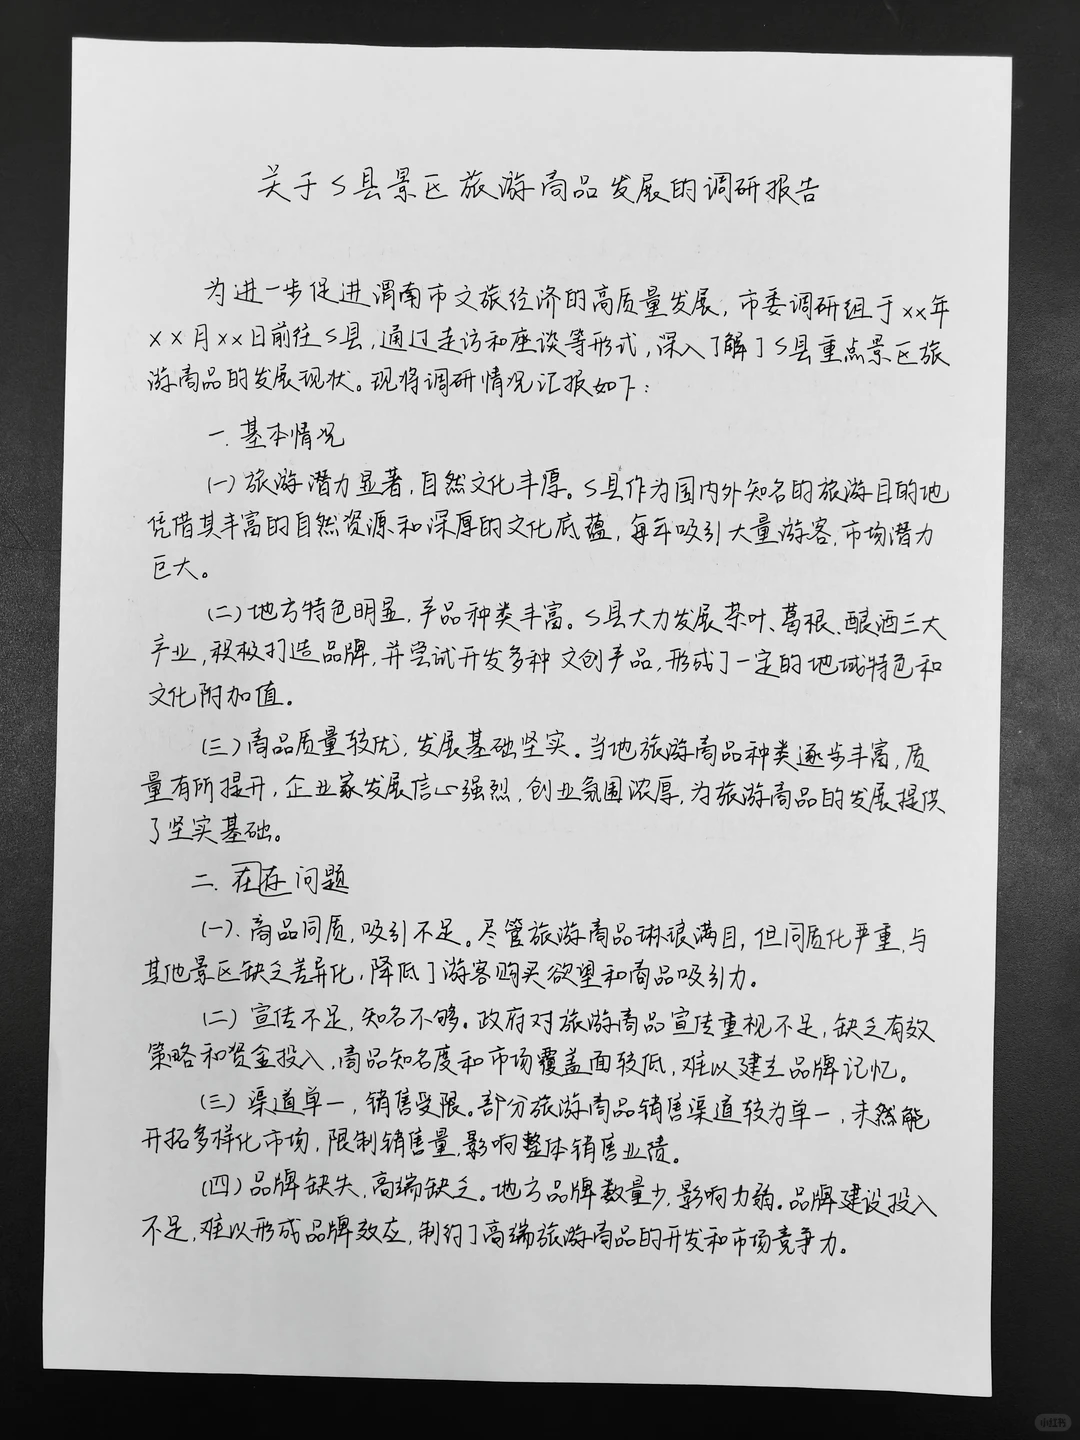 关于S县景区旅游商品发展的调研报告
为进一步促进渭南市文旅经济的高质量发展，市委调研组于xx年
xx月xx日前往S县，通过走访和座谈等形式，深入了解了S县重点景区旅
游商品的发展现状。现将调研情况汇报如下：
一.基本情况
(一)旅游潜力显著，自然文化丰厚。S县作为国内外知名的旅游目的地
凭借其丰富的自然资源和深厚的文化底蕴，每年吸引大量游客，市场潜力
巨大。
(二)地方特色明显，产品种类丰富。S县大力发展茶叶、葛根、酿酒三大
产业，积极打造品牌，并尝试开发多种文创产品，形成了一定的地域特色和
文化附加值。
(三)商品质量较优，发展基础坚实。当地旅游商品种类逐步丰富，质
量有所提升，企业家发展信心强烈，创业氛围浓厚，为旅游商品的发展提供
了坚实基础。
二.在存问题
(一).商品同质，吸引不足。尽管旅游商品琳琅满目，但同质化严重，与
其他景区缺乏差异化，降低了游客购买欲望和商品吸引力。
(二)宣传不足，知名不够。政府对旅游商品宣传重视不足，缺乏有效
策略和资金投入，商品知名度和市场覆盖面较低，难以建立品牌记忆。
(三)渠道单一，销售受限。部分旅游商品销售渠道较为单一，未然能
开拓多样化市场，限制销售量，影响整体销售业绩。
(四)品牌缺失，高端缺乏。地方品牌数量少，影响力弱。品牌建设投入
不足，难以形成品牌效应，制约了高端旅游商品的开发和市场竞争力。
小红书